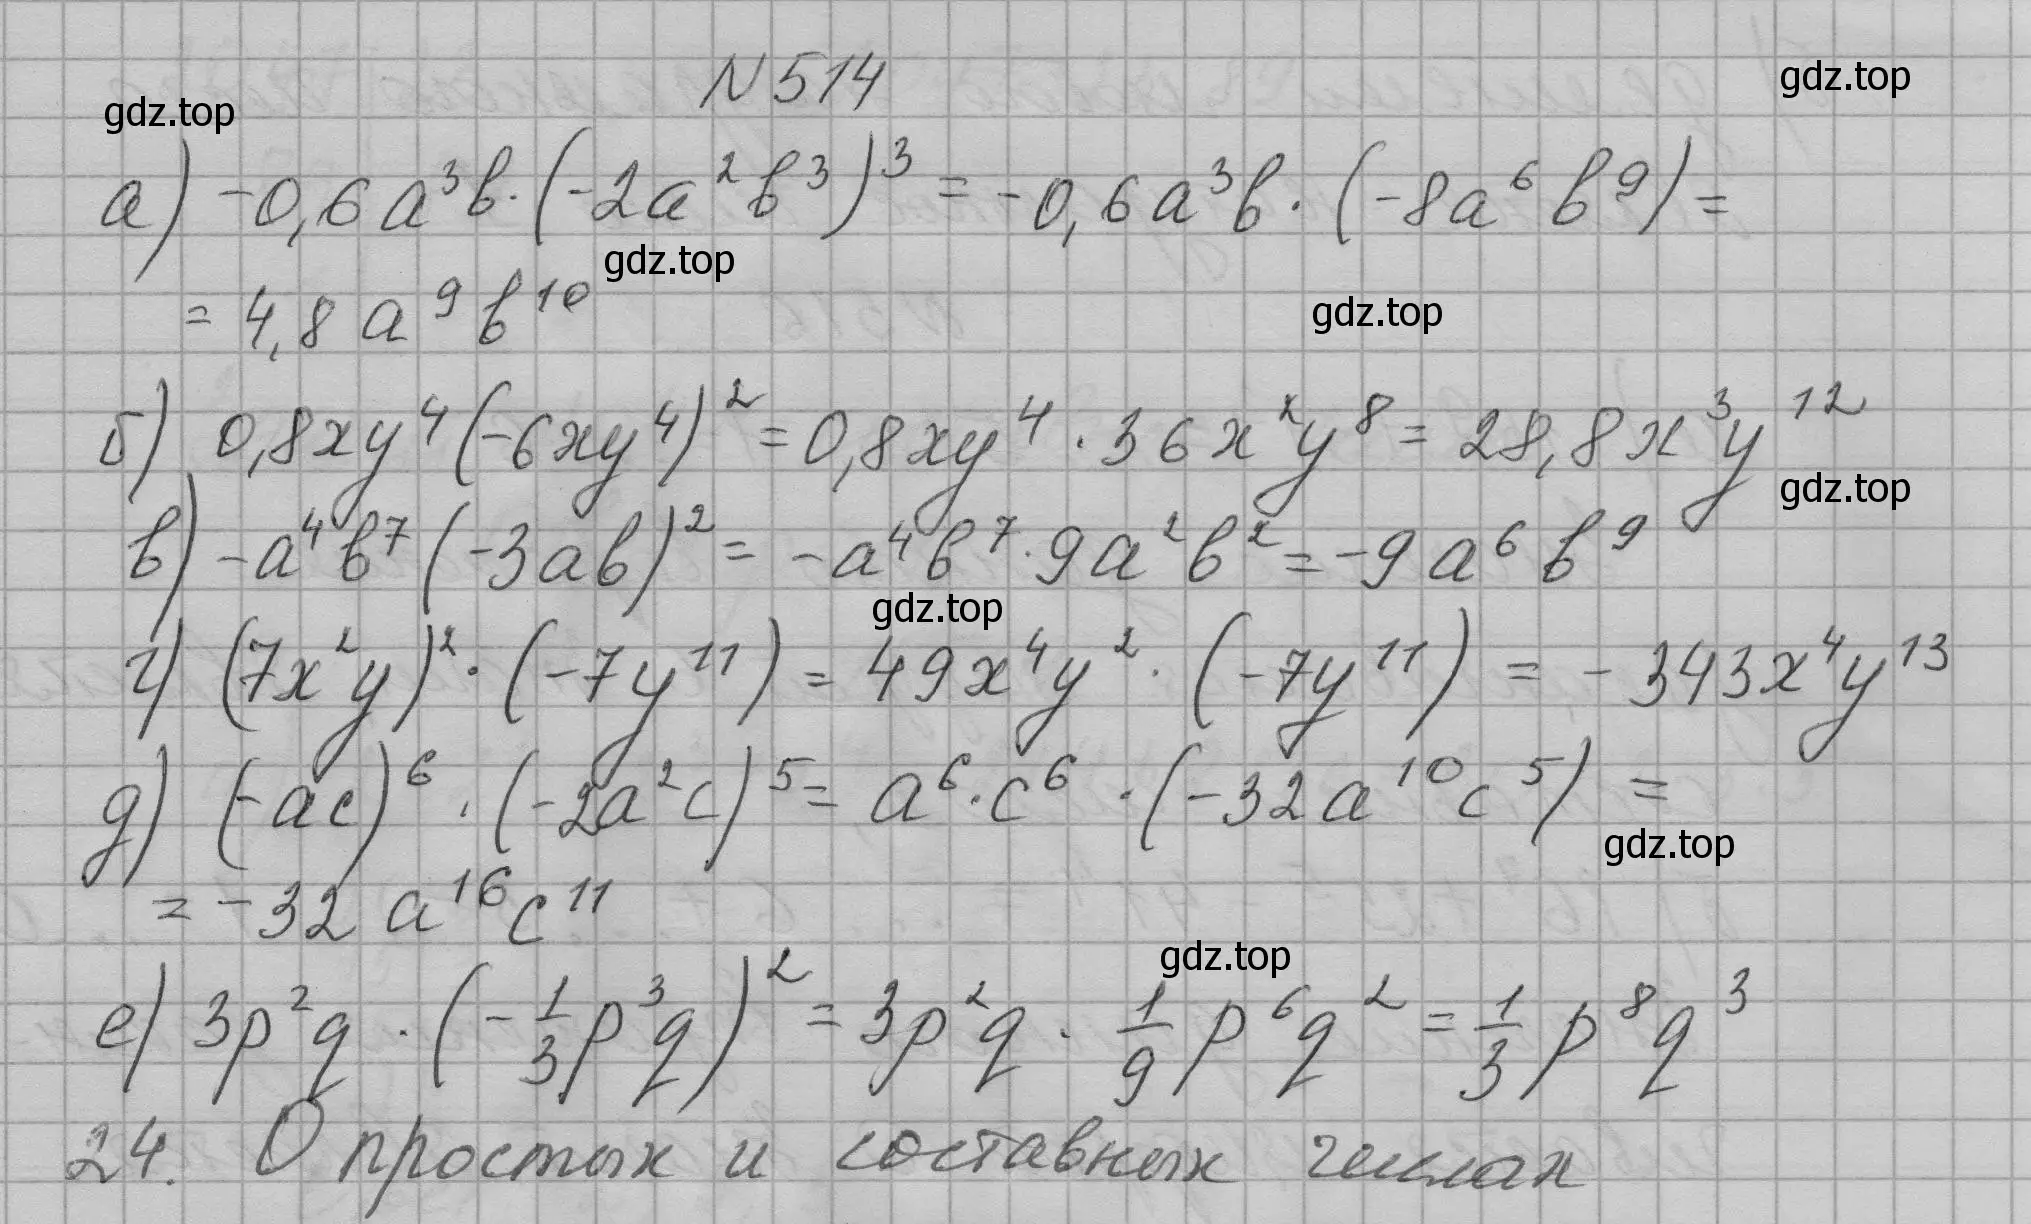 N 514
gdz.top
gdz.top
а) -0,6a³b·(-2a²b³)³ = -0,6a³b·(-8a⁶b⁹) =
gdz.top
= 4,8a⁹b¹⁰
gdz.top
б) 0,8xy⁴(-6xy⁴)² = 0,8xy⁴·36x²y⁸ = 28,8x³y¹²
gdz.top
в) -a⁴b⁷(-3ab)² = -a⁴b⁷·9a²b² = -9a⁶b⁹
gdz.top
г) (7x²y)²·(-7y¹¹) = 49x⁴y²·(-7y¹¹) = -343x⁴y¹³
д) (-ac)⁶·(-2a²c)⁵ = a⁶·c⁶·(-32a¹⁰c⁵) =
gdz.top
= -32a¹⁶c¹¹
gdz.top
е) 3p²q·(-1/3p³q)² = 3p²q·1/9p⁶q² = 1/3p⁸q³
24. О простых и составных числах